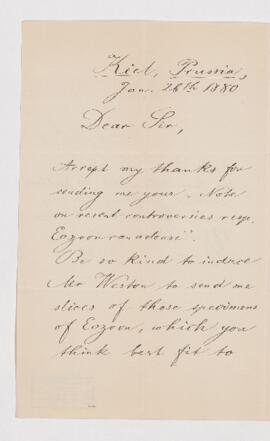 Kiel, Prussia,
Jan. 26th 1880
Dear Sir,
Accept my thanks for
sending me your „Note
on recent controversies resp.
Eozoon canadense“.
Be so kind to induce
Mr Weston to send me
slices of those specimens
of Eozoon, which you
think best fit to